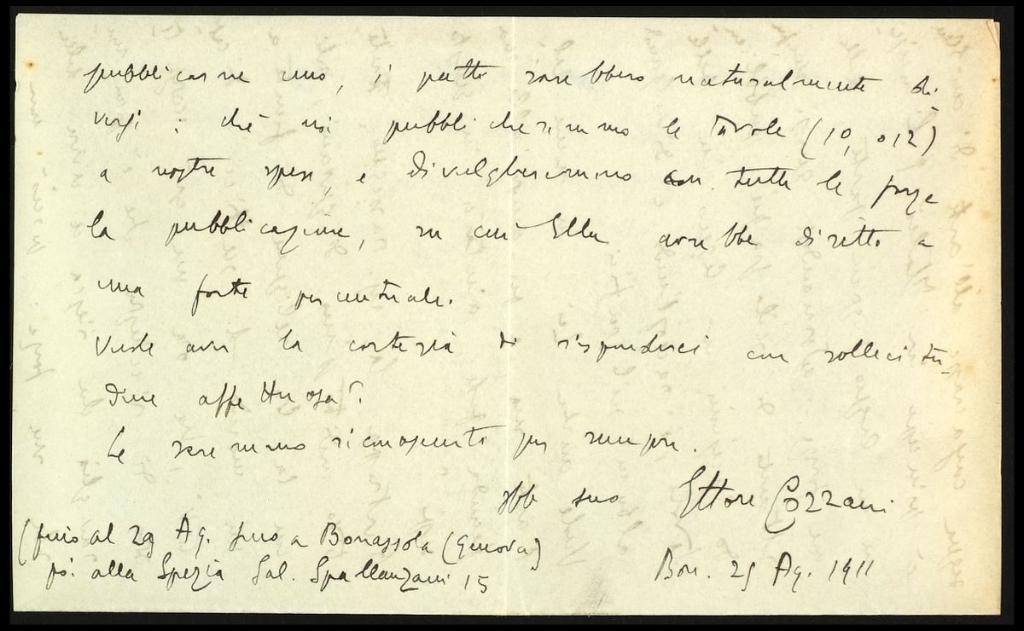 pubblicarne uno, i patti sarebbero naturalmente di
versi: che noi pubblicheremmo le tavole (10, o 12)
a nostre spese, e divulgheremmo con tutte le forze
la pubblicazione, su cui Ella avrebbe diritto a
una forte percentuale.
Vuole aver la cortesia di risponderci con sollecitu-
dine affettuosa?
Le saremmo riconoscenti per sempre.
obb suo Ettore Cozzani
(fino al 29 Ag. sono a Bonassola (Genova)
poi alla Spezia Sal. Spallanzani 15
Bon. 25 Ag. 1911